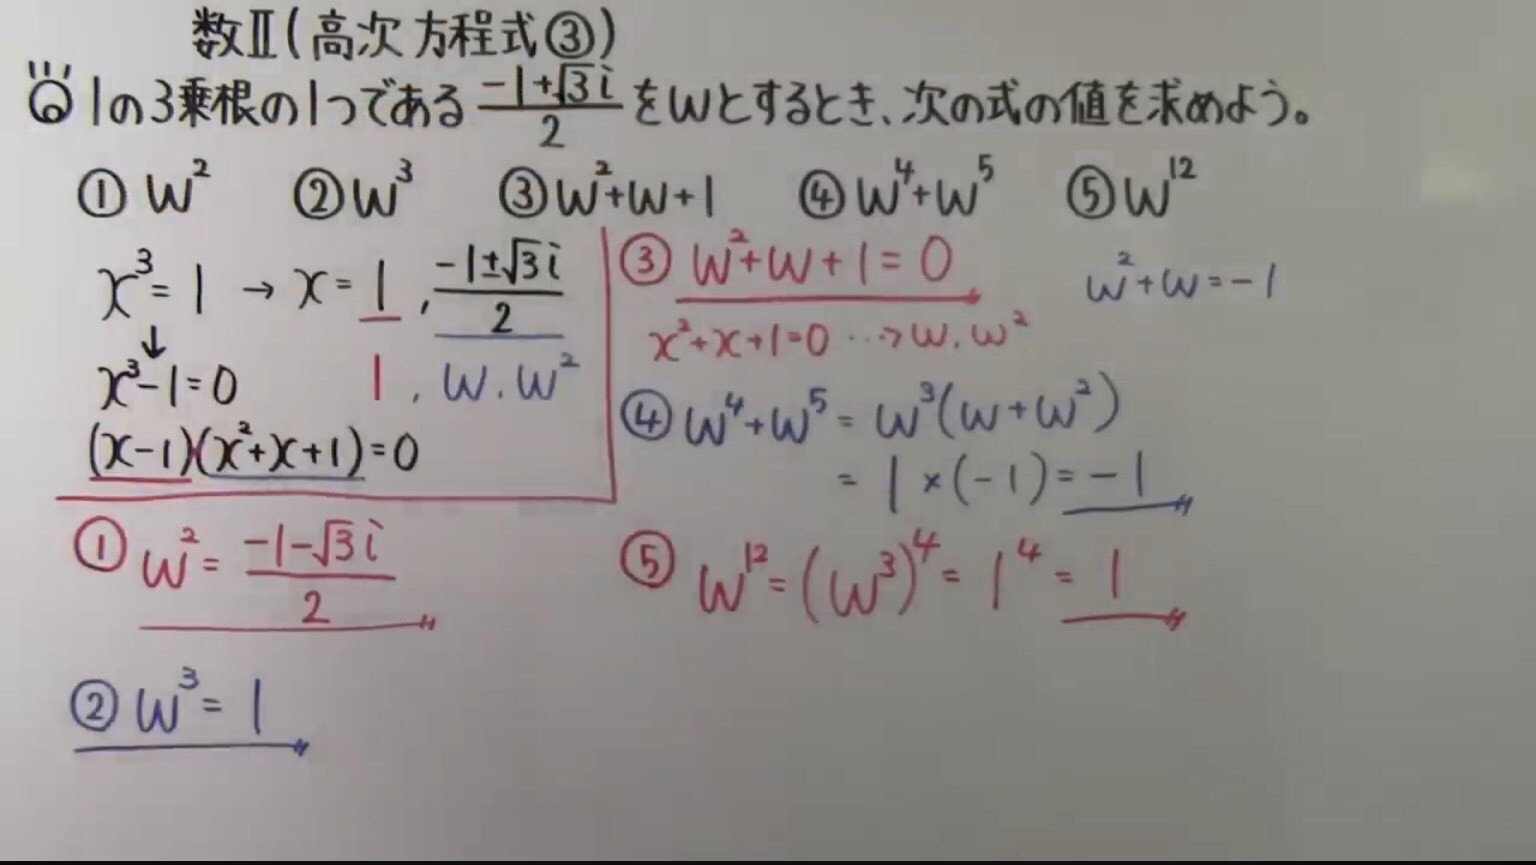 数Ⅱ(高次方程式③)
1の3乗根の1つである (-1+√3i)/2 をωとするとき、次の式の値を求めよう。
① ω² ② ω³ ③ ω²+ω+1 ④ ω⁴+ω⁵ ⑤ ω¹²
x³=1 → x=1, (-1±√3i)/2
↓
x³-1=0 1, ω, ω²
(x-1)(x²+x+1)=0
① ω² = (-1-√3i)/2
② ω³ = 1
③ ω²+ω+1=0 ω²+ω=-1
x²+x+1=0 …→ω, ω²
④ ω⁴+ω⁵ = ω³(ω+ω²)
= 1×(-1) = -1
⑤ ω¹² = (ω³)⁴ = 1⁴ = 1